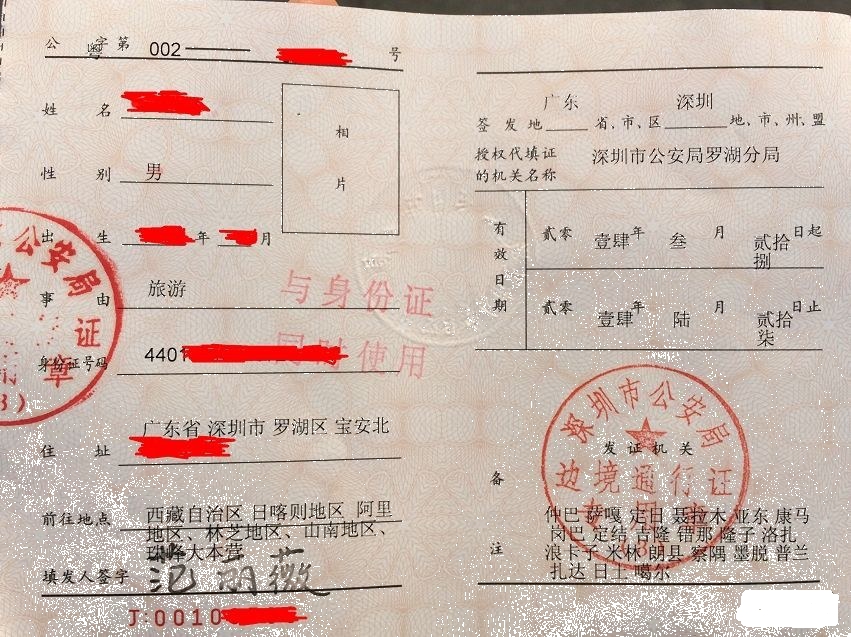 公 粤 字第 002 —— 号
姓 名
相
片
性 别 男
出 生 年 月
事 由 旅游
与身份证
同时使用
身份证号码 4401
住 址 广东省 深圳市 罗湖区 宝安北
前往地点 西藏自治区 日喀则地区 阿里
地区、林芝地区、山南地区、
珠峰大本营
填发人签字
J:0010
公安局
证
章
广东 深圳
签发地 省、市、区 地、市、州、盟
授权代填证
的机关名称 深圳市公安局罗湖分局
有效日期
贰零壹肆年叁月贰拾捌日起
贰零壹肆年陆月贰拾柒日止
深圳市公安局
发证机关
边境通行证
备
注
仲巴 萨嘎 定日 聂拉木 亚东 康马
岗巴 定结 吉隆 错那 隆子 洛扎
浪卡子 米林 朗县 察隅 墨脱 普兰
扎达 日土 噶尔